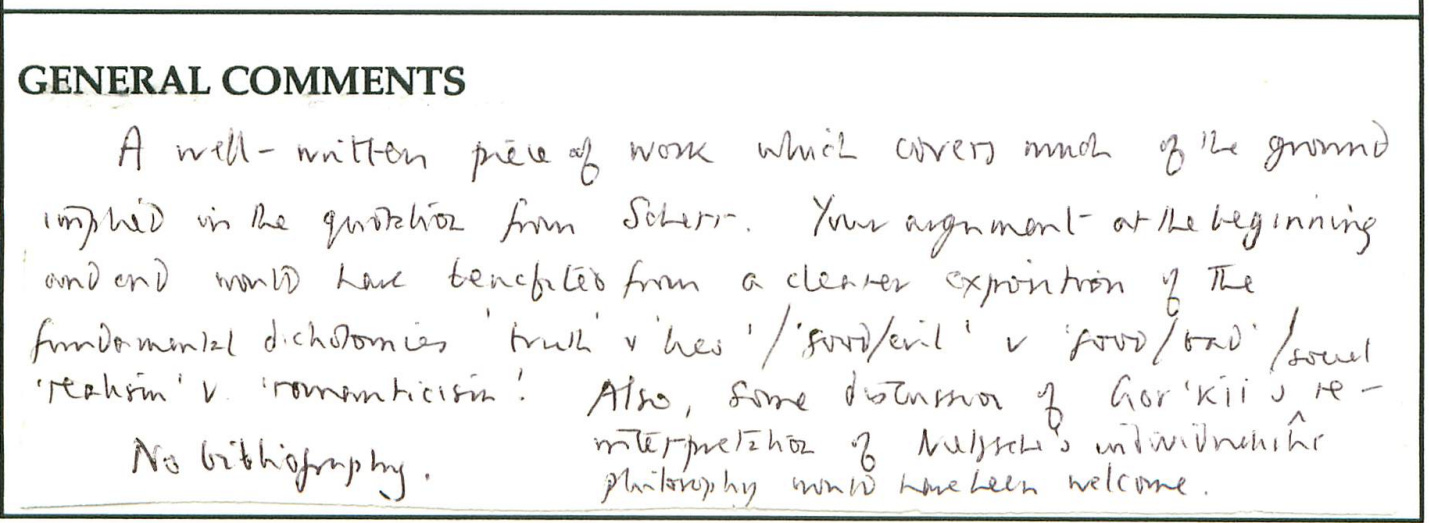 GENERAL COMMENTS
A well-written piece of work which covers much of the ground
implied in the quotation from Scherr. Your argument at the beginning
and end would have benefited from a clearer exposition of the
fundamental dichotomies 'truth' v 'lies' / 'good/evil' v 'good/bad' / social
'realism' v. 'romanticism'. Also, some discussion of Gor'kii's re-
interpretation of Nietzsche's individualistic
No bibliography. philosophy would have been welcome.